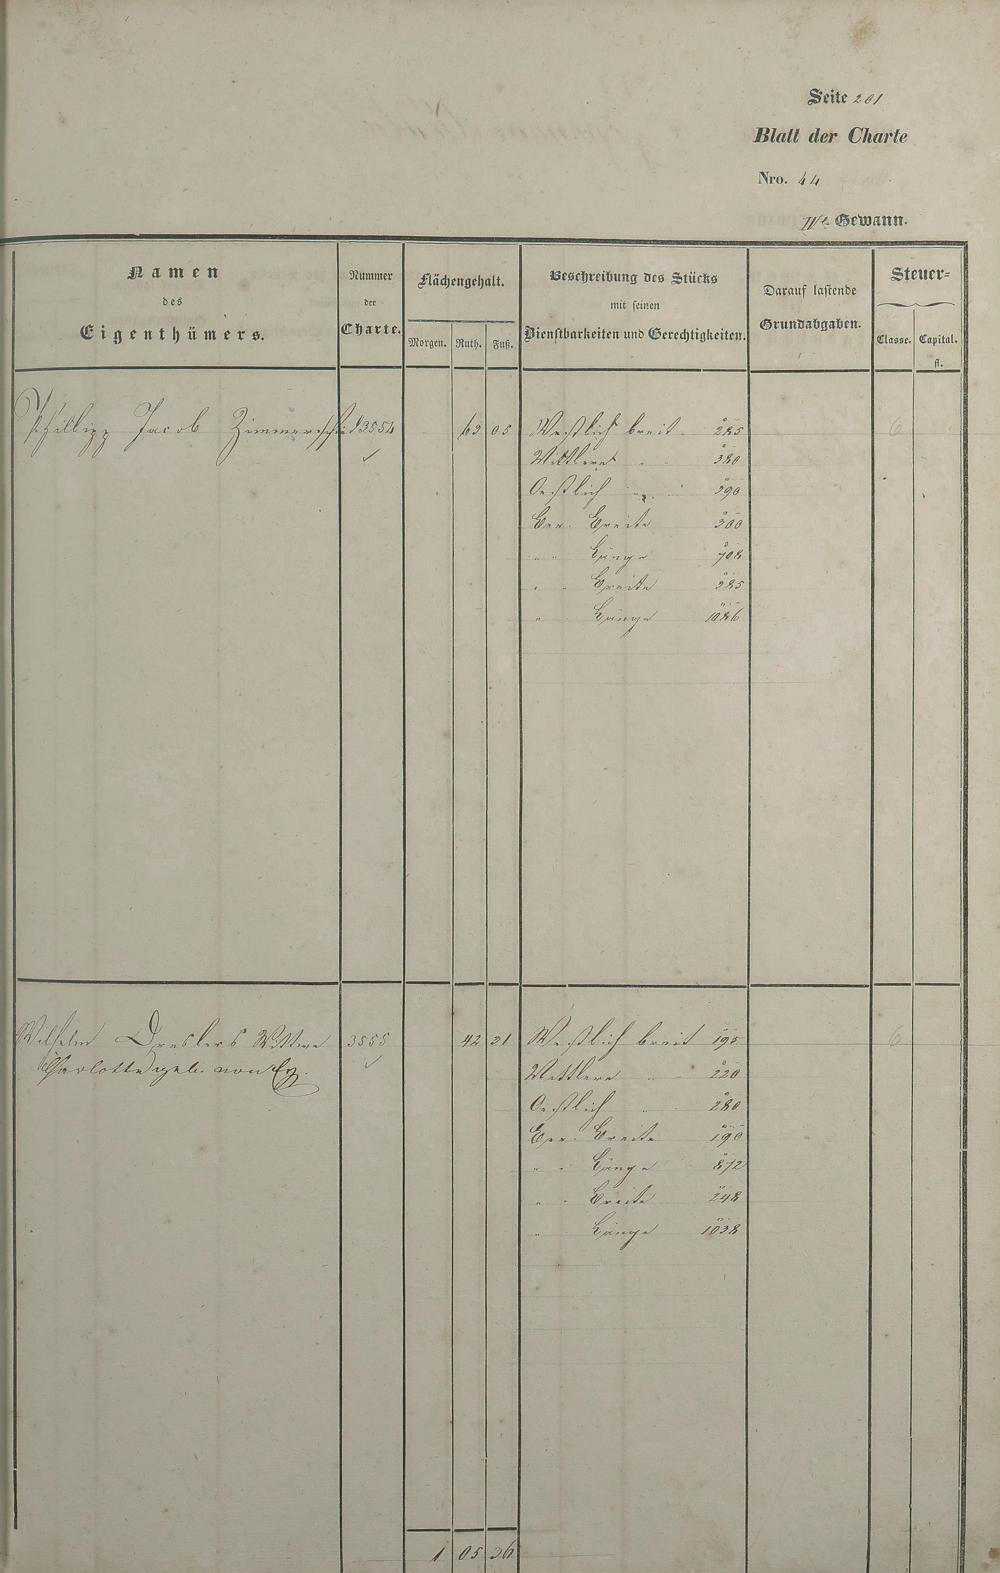 Seite 201
Blatt der Charte
Nro. 44
IIte Gewann.
Namen des Eigenthümers.
Nummer der Charte.
Flächengehalt.
Morgen. Ruth. Fuß.
Beschreibung des Stücks mit seinen Dienstbarkeiten und Gerechtigkeiten.
Darauf lastende Grundabgaben.
Steuer=
Classe. Capital.
fl.
Phillipp Jacob Zimmerschied 3554 63 05 Westlich breit 285 6
Mittlere " " 380
Oestlich " " 290
Ger. Breite 300
" " Länge 708
" " Breite 385
" " Länge 1086
Wilhelm Dreslers Wittwe 3555 42 31 Westlich breit 195 6
Charlotte geb. von
Mittlere " " 220
Oestlich " 280
Ger. Breite 190
" " Länge 872
" " Breite 248
" Länge 1038
1 05 36